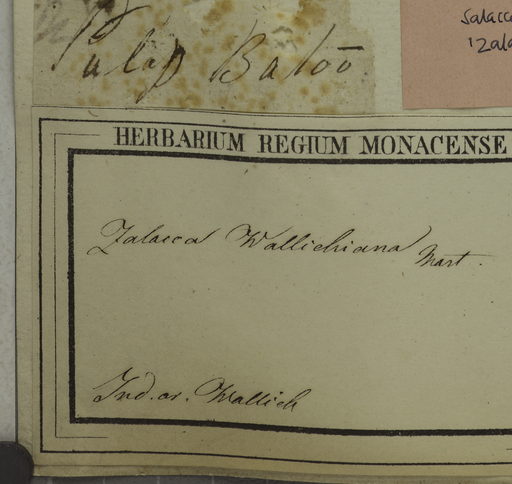 Pulap Batōō
Salacc
'Zala
HERBARIUM REGIUM MONACENSE
Zalacca Wallichiana Mart.
Ind. or. Wallich